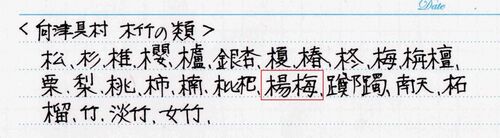 Date
<向津具村 木竹の類>
松、杉、椎、櫻、櫨、銀杏、榎、椿、柊、梅、栴檀、
栗、梨、桃、柿、楠、枇杷、楊梅、躑躅、南天、柘
榴、竹、淡竹、女竹、